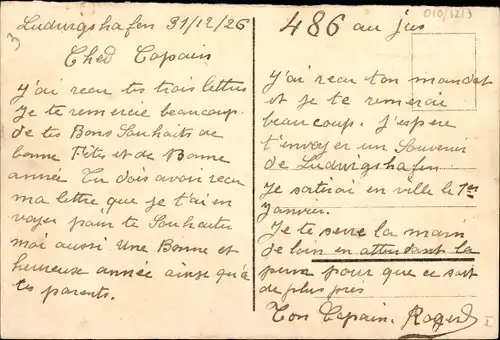 Ludwigshafen 31/12/26
Cher Copain
J'ai recu tes trois lettres
Je te remercie beaucoup
de tes Bons Souhaits de
bonne Fêtes et de Bonne
année Tu dois avoir recu
ma lettre que je t'ai en
voyer pour te Souhaiter
moi aussi Une Bonne et
heureuse année ainsi qu'à
tes parents.
486 au jus
J'ai recu ton mandat
et je te remerci
beaucoup. J'espere
t'envoyer un Souvenir
de Ludwigshafen
Je en ville le 1er
Janvier.
Je te serre la main
de loin en attendant la
pour que ce soit
de plus près
Ton Copain. Roger